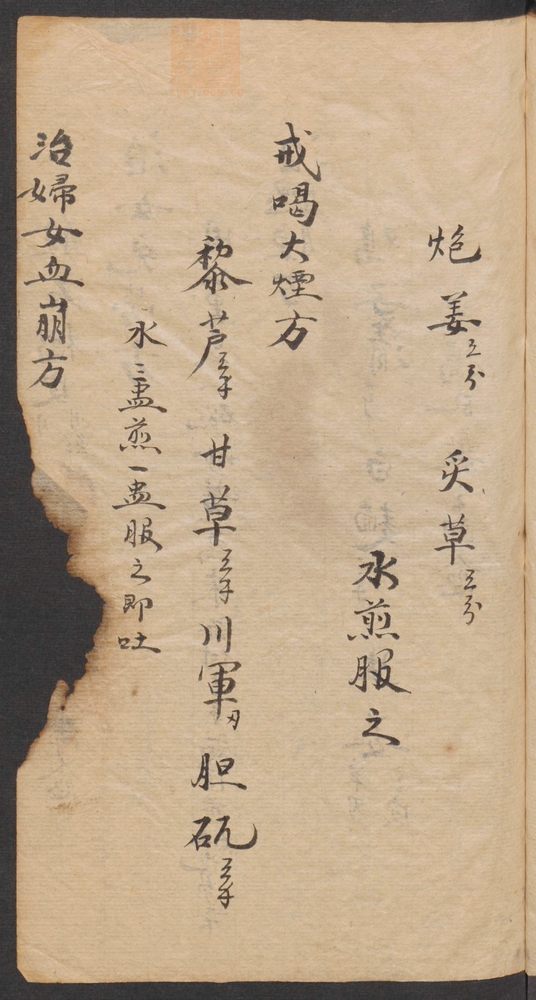 炮姜五分 炙草五分
水煎服之
戒喝大煙方
藜芦三千 甘草三千 川軍刃 胆矾三千
水三盅煎一盅服之即吐
治婦女血崩方